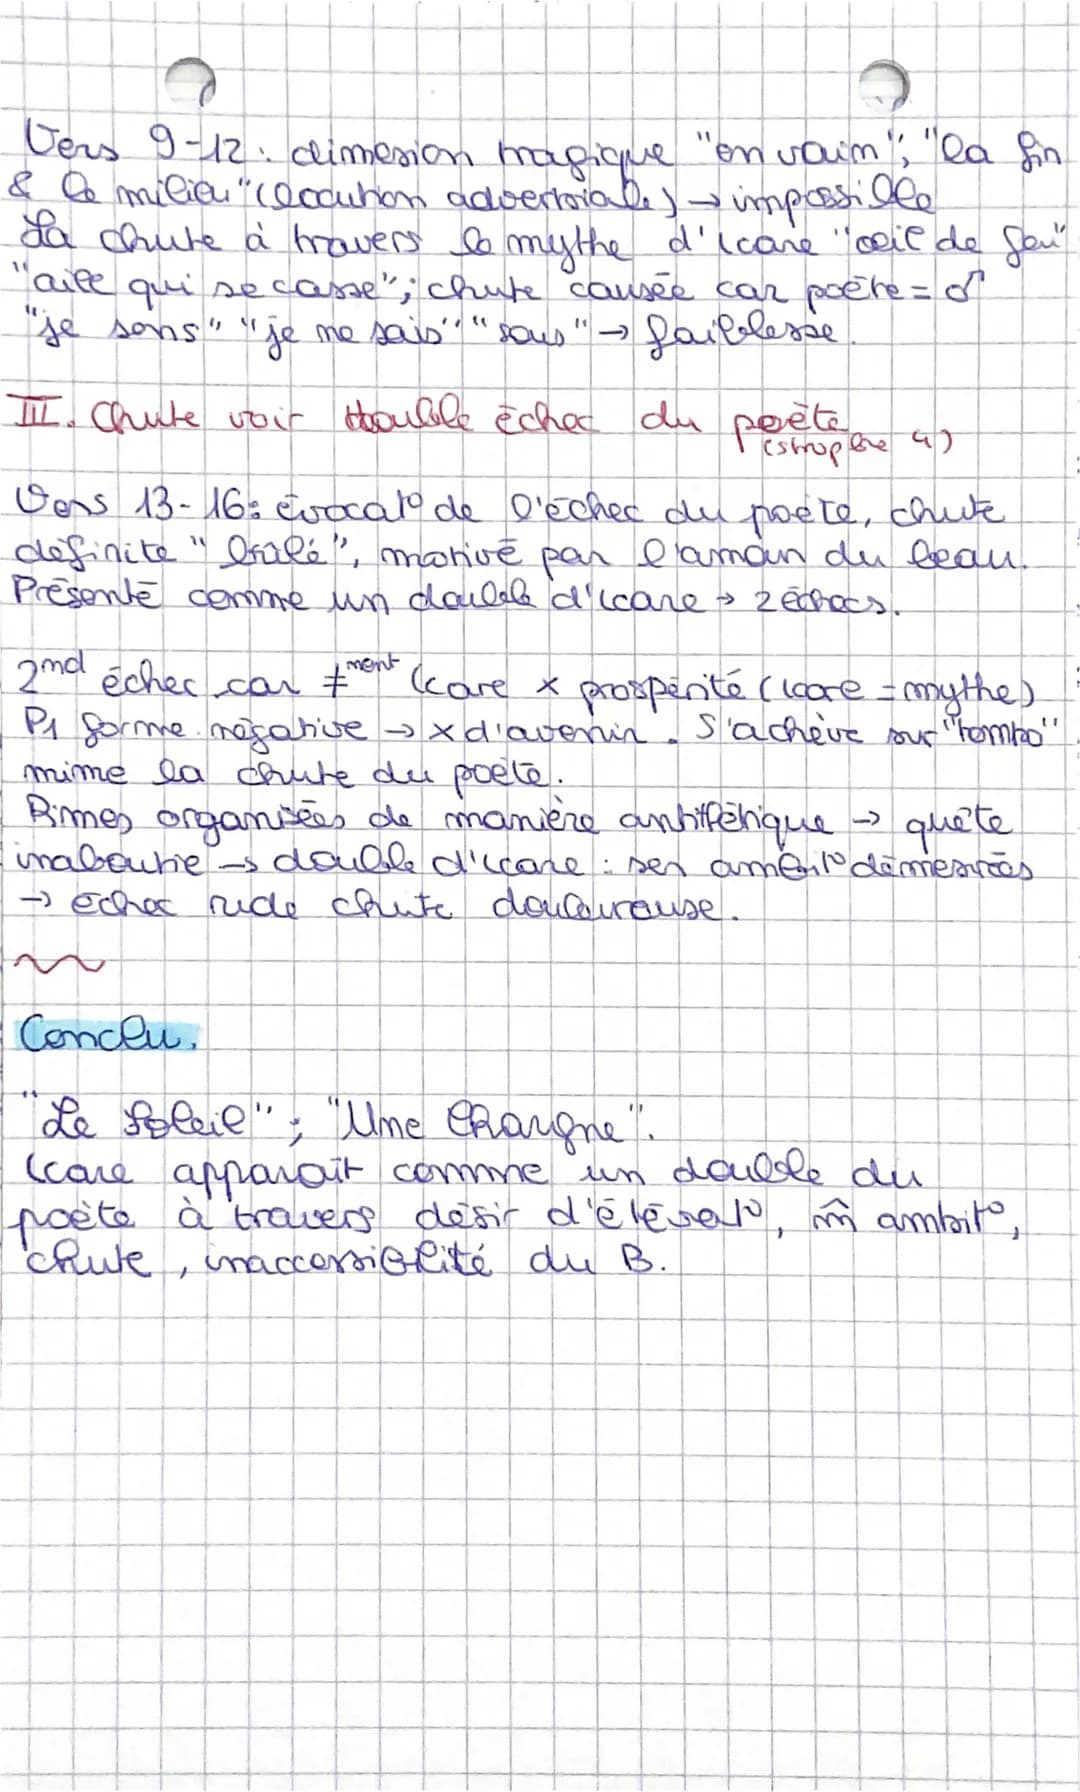 Vers 9-12 : dimension tragique "en vain"; "la fin
& le milieu" (locution adverbiale) → impossible
La chute à travers le mythe d'Icare "oeil de feu"
"aile qui se casse"; chute causée car poète = ♂
"je sens" "je ne sais" "sous" → faiblesse.
III. Chute voir double échec du poète
(strophe 4)
Vers 13-16: évocat° de l'échec du poète, chute
définite "brûlé", motivé par l'amour du beau.
Présenté comme un double d'Icare → 2 échecs.
2nd échec car ≠ment Icare x prospérité (Icare = mythe)
P1 forme négative → x d'avenir. S'achève sur "tombo"
mime la chute du poète.
Rimes organisées de manière antithétique → quête
inaboutie → double d'Icare : ses ambit° démesurées
→ échec rude chute douloureuse.
Conclu.
"Le Soleil"; "Une Charogne".
Icare apparaît comme un double du
poète à travers désir d'élévat°, m̂ ambit°,
chute, inaccessibilité du B.